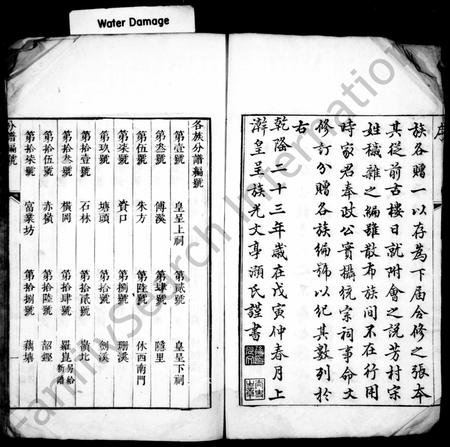 Water Damage
序
族各贈一以存為下屆合修之張本
其從前古樓日就附會之說芳村宗
姓穢雜之編雖散布族間不在行用
時家君奉政公實攝統宗祠事命文
修訂分贈各族編號以紀其數列於
右
乾隆二十三年歲在戊寅仲春月上
澣皇呈族光文亭瀕氏謹書
各族分譜編號
第壹號 皇呈上祠 第貳號 皇呈下祠
第叁號 傅溪 第肆號 隆里
第伍號 朱方 第陸號 休西南門
第柒號 資口 第捌號 珊溪
第玖號 塘頭 第拾號 劍溪
第拾壹號 石林 第拾貳號 黃北
第拾叁號 橫岡 第拾肆號 羅崑 另給新譜
第拾伍號 赤嶺 第拾陸號 韶鏗
第拾柒號 富業坊 第拾捌號 藕塘
分譜編號 一
FamilySearch International